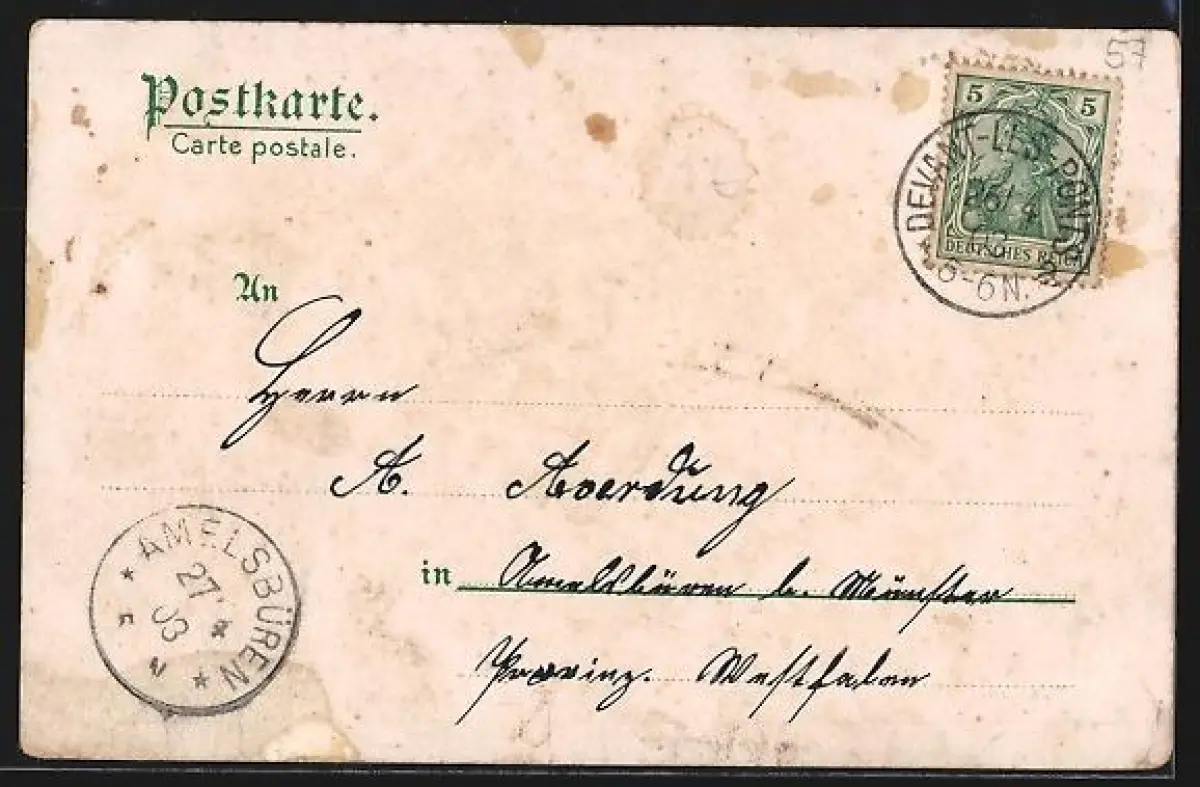 57
Postkarte.
Carte postale.
5 5
DEUTSCHES REICH
* DEVANT-LES-PONTS *
26/4
03
6-6N.
An
Herrn
A. Averdung
in Amelsbüren b. Münster
Provinz. Westfalen
* AMELSBÜREN *
27
03